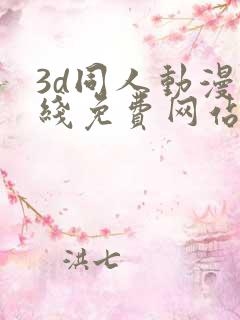 3d同人動漫
綫免費网站
洪七